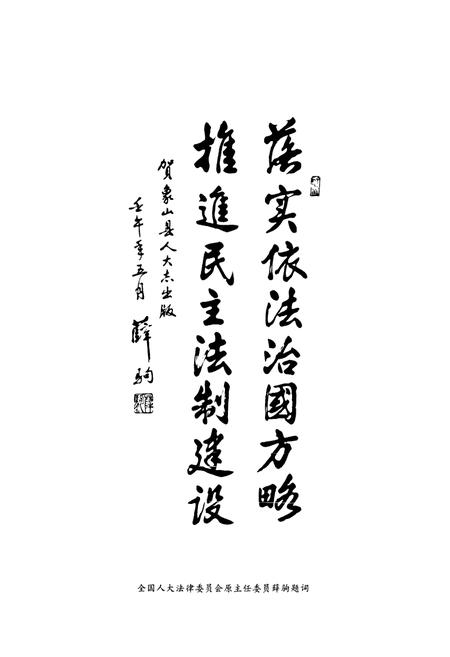 落实依法治國方略
推進民主法制建设
贺象山县人大志出版
壬午年五月 薛驹
全国人大法律委员会原主任委员薛驹题词